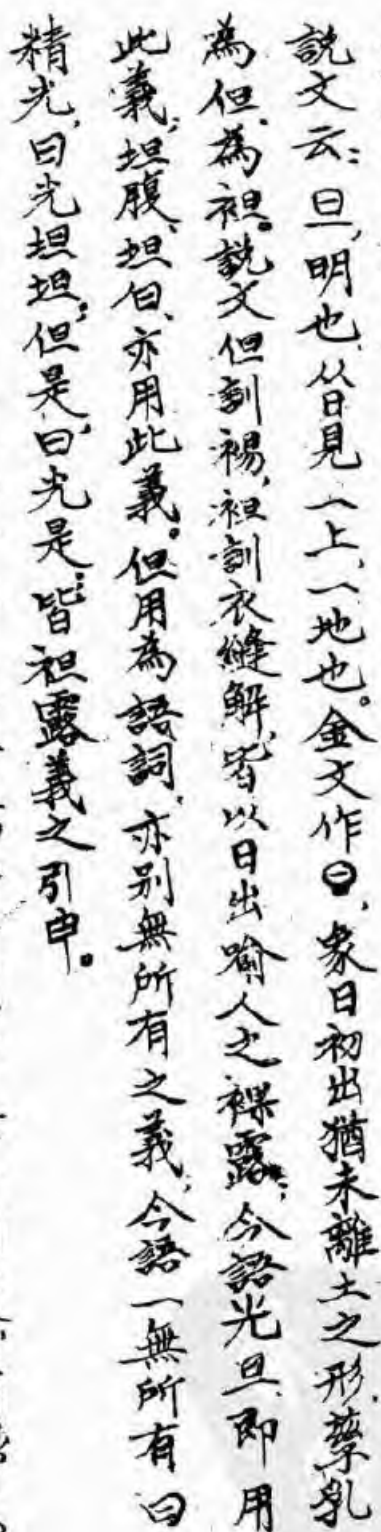 説文云：旦，明也，从日見一上，一地也。金文作㊀，象日初出猶未離土之形，孳乳
為但、為袒。説文但訓裼，袒訓衣縫解，皆以日出喻人之裸露；今語光旦，即用
此義，坦腹、坦白、亦用此義。但用為語詞，亦別無所有之義，今語一無所有曰
精光，曰光坦坦。但是，曰光是：皆袒露義之引申。